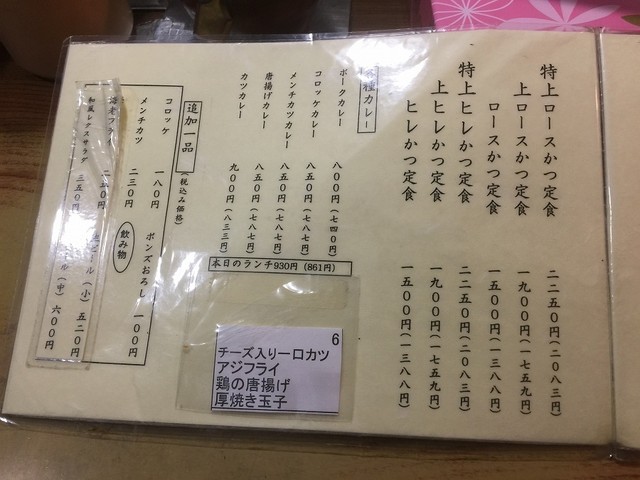 特上ロースかつ定食 二二五〇円(二〇八三円)
上ロースかつ定食 一九〇〇円(一七五九円)
ロースかつ定食 一五〇〇円(一三八八円)
特上ヒレかつ定食 二二五〇円(二〇八三円)
上ヒレかつ定食 一九〇〇円(一七五九円)
ヒレかつ定食 一五〇〇円(一三八八円)
種カレー
ポークカレー 八〇〇円(七四〇円)
コロッケカレー 八五〇円(七八七円)
メンチカツカレー 八五〇円(七八七円)
唐揚げカレー 八五〇円(七八七円)
カツカレー 九〇〇円(八三三円)
本日のランチ930円(861円)
6
チーズ入り一口カツ
アジフライ
鶏の唐揚げ
厚焼き玉子
追加一品(税込み価格)
コロッケ 一八〇円
メンチカツ 二三〇円
海老フライ 二五〇円
和風レタスサラダ 三五〇円
ポンズおろし 一〇〇円
飲み物
ビール(小) 五二〇円
ール(中) 六〇〇円